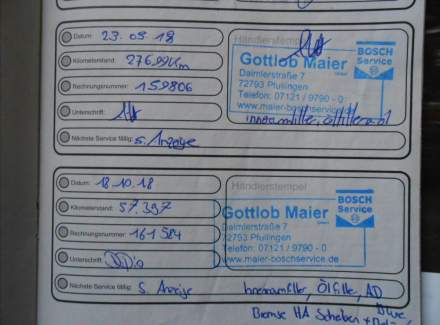 Datum: 23.05.18
Kilometerstand: 27699Km
Rechnungsnummer: 159806
Unterschrift:
Händlerstempel
BOSCH
Service
Gottlob Maier
Daimlerstraße 7
72793 Pfullingen
Telefon: 07121 / 9790 - 0
www.maier-boschservice
Innenraumfilter, Ölfilter + Öl
Nächste Service fällig: S. Anzeige
Datum: 18.10.18
Kilometerstand: 57.387
Rechnungsnummer: 161584
Unterschrift:
Händlerstempel
BOSCH
Service
Gottlob Maier
Daimlerstraße 7
72793 Pfullingen
Telefon: 07121 / 9790 - 0
www.maier-boschservice.de
Nächste Service fällig: S. Anzeige Innenraumfilter, Ölfilter, AD
Bremse HA Scheiben +